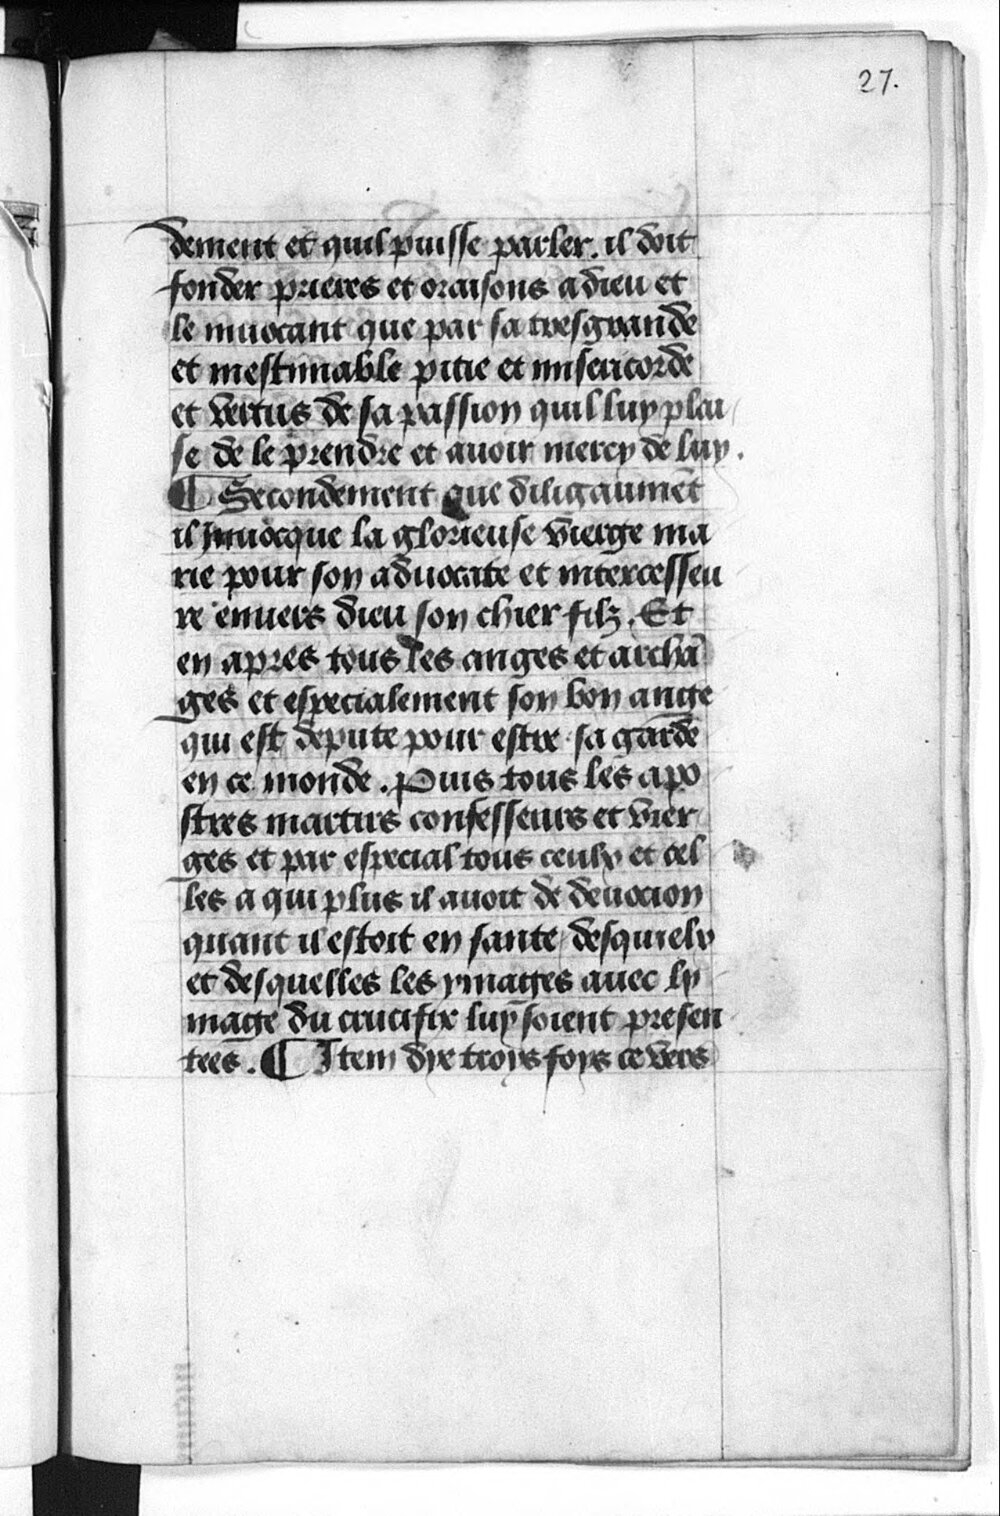 27.
dement et quil puisse parler. il doit
fonder prieres et oraisons a dieu et
le inuocant que par sa tresgrande
et inestimable pitie et misericorde
et vertus de sa passion quil luy plai
se de le prendre et auoir mercy de luy.
¶ Secondement que diligaumēt
il inuocque la glorieuse vierge ma
rie pour son aduocate et intercesseu
re enuers dieu son chier filz. Et
en apres tous les anges et archā
ges et especialement son bon ange
qui est depute pour estre sa garde
en ce monde. Puis tous les apo
stres martirs confesseurs et vier
ges et par especial tous ceulx et cel
les a qui plus il auoit de deuocion
quant il estoit en sante desquielx
et desquelles les ymages auec ly
mage du crucifix luy soient presen
tees. ¶ Item dye troys foys ce vers